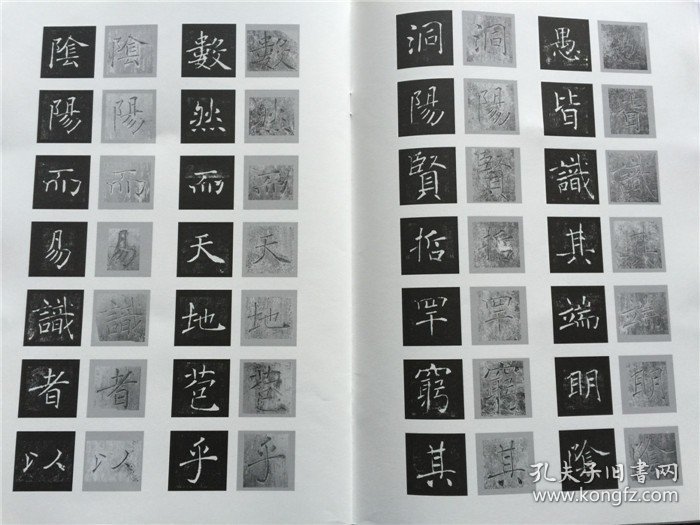 愚皆識其端明陰
愚皆識其端明陰
洞陽賢哲罕窮其
洞陽賢哲罕窮其
數然而天地苞乎
數然而天地苞乎
陰陽而易識者以
陰陽而易識者以
孔夫子旧书网
www.kongfz.com